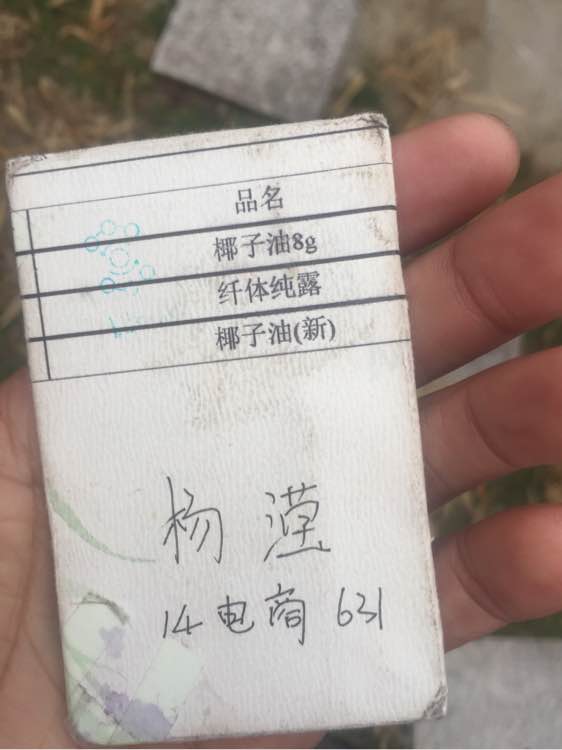 品名
椰子油8g
纤体纯露
椰子油(新)
杨滢
14电商 631